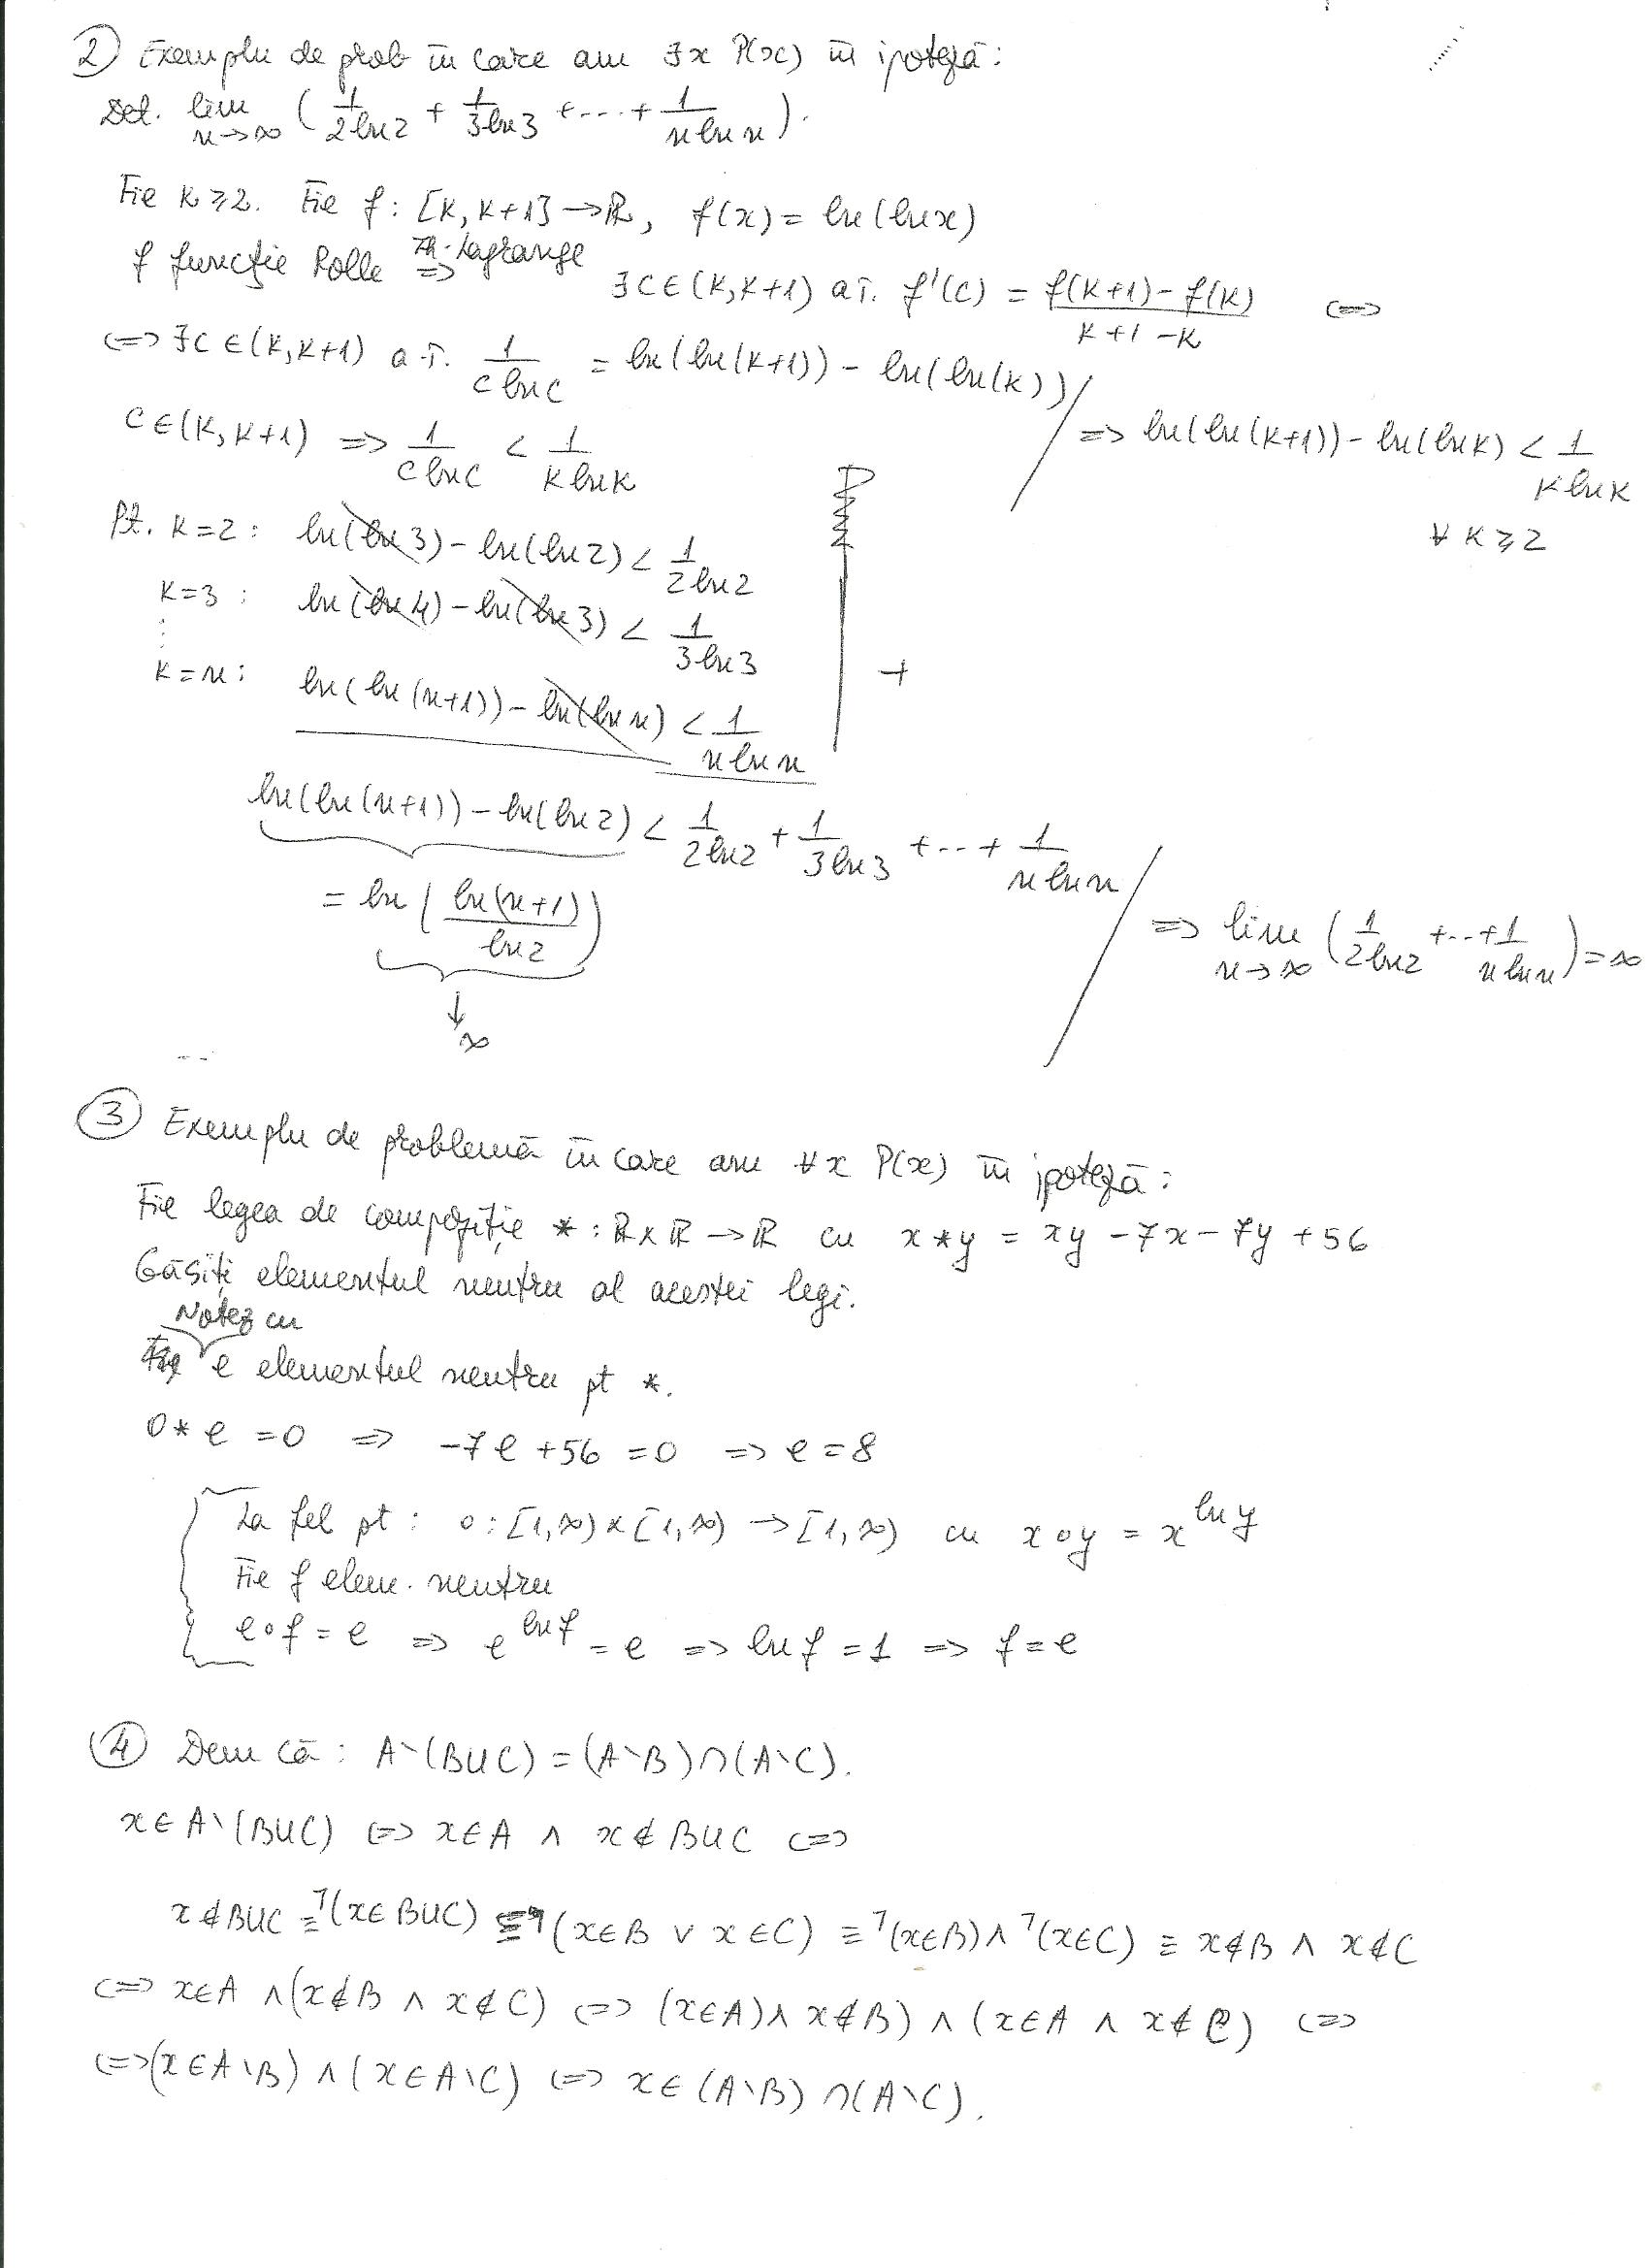 ② Exemplu de prob în care am ∃x P(x) în ipoteză:
Det. lim n→∞ (1/(2ln2) + 1/(3ln3) + ... + 1/(n ln n)).
Fie k ≥ 2. Fie f: [k, k+1] → ℝ, f(x) = ln(ln x)
f funcție Rolle ⇒ Th. Lagrange ∃c∈(k,k+1) a.î. f'(c) = (f(k+1) - f(k))/(k+1-k) ⇔
⇔ ∃c∈(k,k+1) a.î. 1/(c ln c) = ln(ln(k+1)) - ln(ln(k))
c∈(k,k+1) ⇒ 1/(c ln c) < 1/(k ln k) ⇒ ln(ln(k+1)) - ln(ln k) < 1/(k ln k)
∀ k ≥ 2
Pt. k=2: ln(ln3) - ln(ln2) < 1/(2ln2)
k=3: ln(ln4) - ln(ln3) < 1/(3ln3)
⋮
k=n: ln(ln(n+1)) - ln(ln n) < 1/(n ln n) +
ln(ln(n+1)) - ln(ln2) < 1/(2ln2) + 1/(3ln3) + ... + 1/(n ln n)
= ln(ln(n+1)/ln2) ⇒ lim n→∞ (1/(2ln2) + ... + 1/(n ln n)) = ∞
↓
∞
③ Exemplu de problemă în care am ∀x P(x) în ipoteză:
Fie legea de compoziție * : ℝ×ℝ → ℝ cu x*y = xy - 7x - 7y + 56
Găsiți elementul neutru al acestei legi.
Notez cu
e elementul neutru pt *.
0*e = 0 ⇒ -7e + 56 = 0 ⇒ e = 8
La fel pt: ∘ : [1,∞)×[1,∞) → [1,∞) cu x∘y = x^(ln y)
Fie f elem. neutru
e∘f = e ⇒ e^(ln f) = e ⇒ ln f = 1 ⇒ f = e
④ Dem că: A\(B∪C) = (A\B)∩(A\C).
x∈A\(B∪C) ⇔ x∈A ∧ x∉B∪C ⇔
x∉B∪C ≡ ¬(x∈B∪C) ≡ ¬(x∈B ∨ x∈C) ≡ ¬(x∈B) ∧ ¬(x∈C) ≡ x∉B ∧ x∉C
⇔ x∈A ∧ (x∉B ∧ x∉C) ⇔ (x∈A) ∧ x∉B) ∧ (x∈A ∧ x∉C) ⇔
⇔ (x∈A\B) ∧ (x∈A\C) ⇔ x∈(A\B) ∩ (A\C).